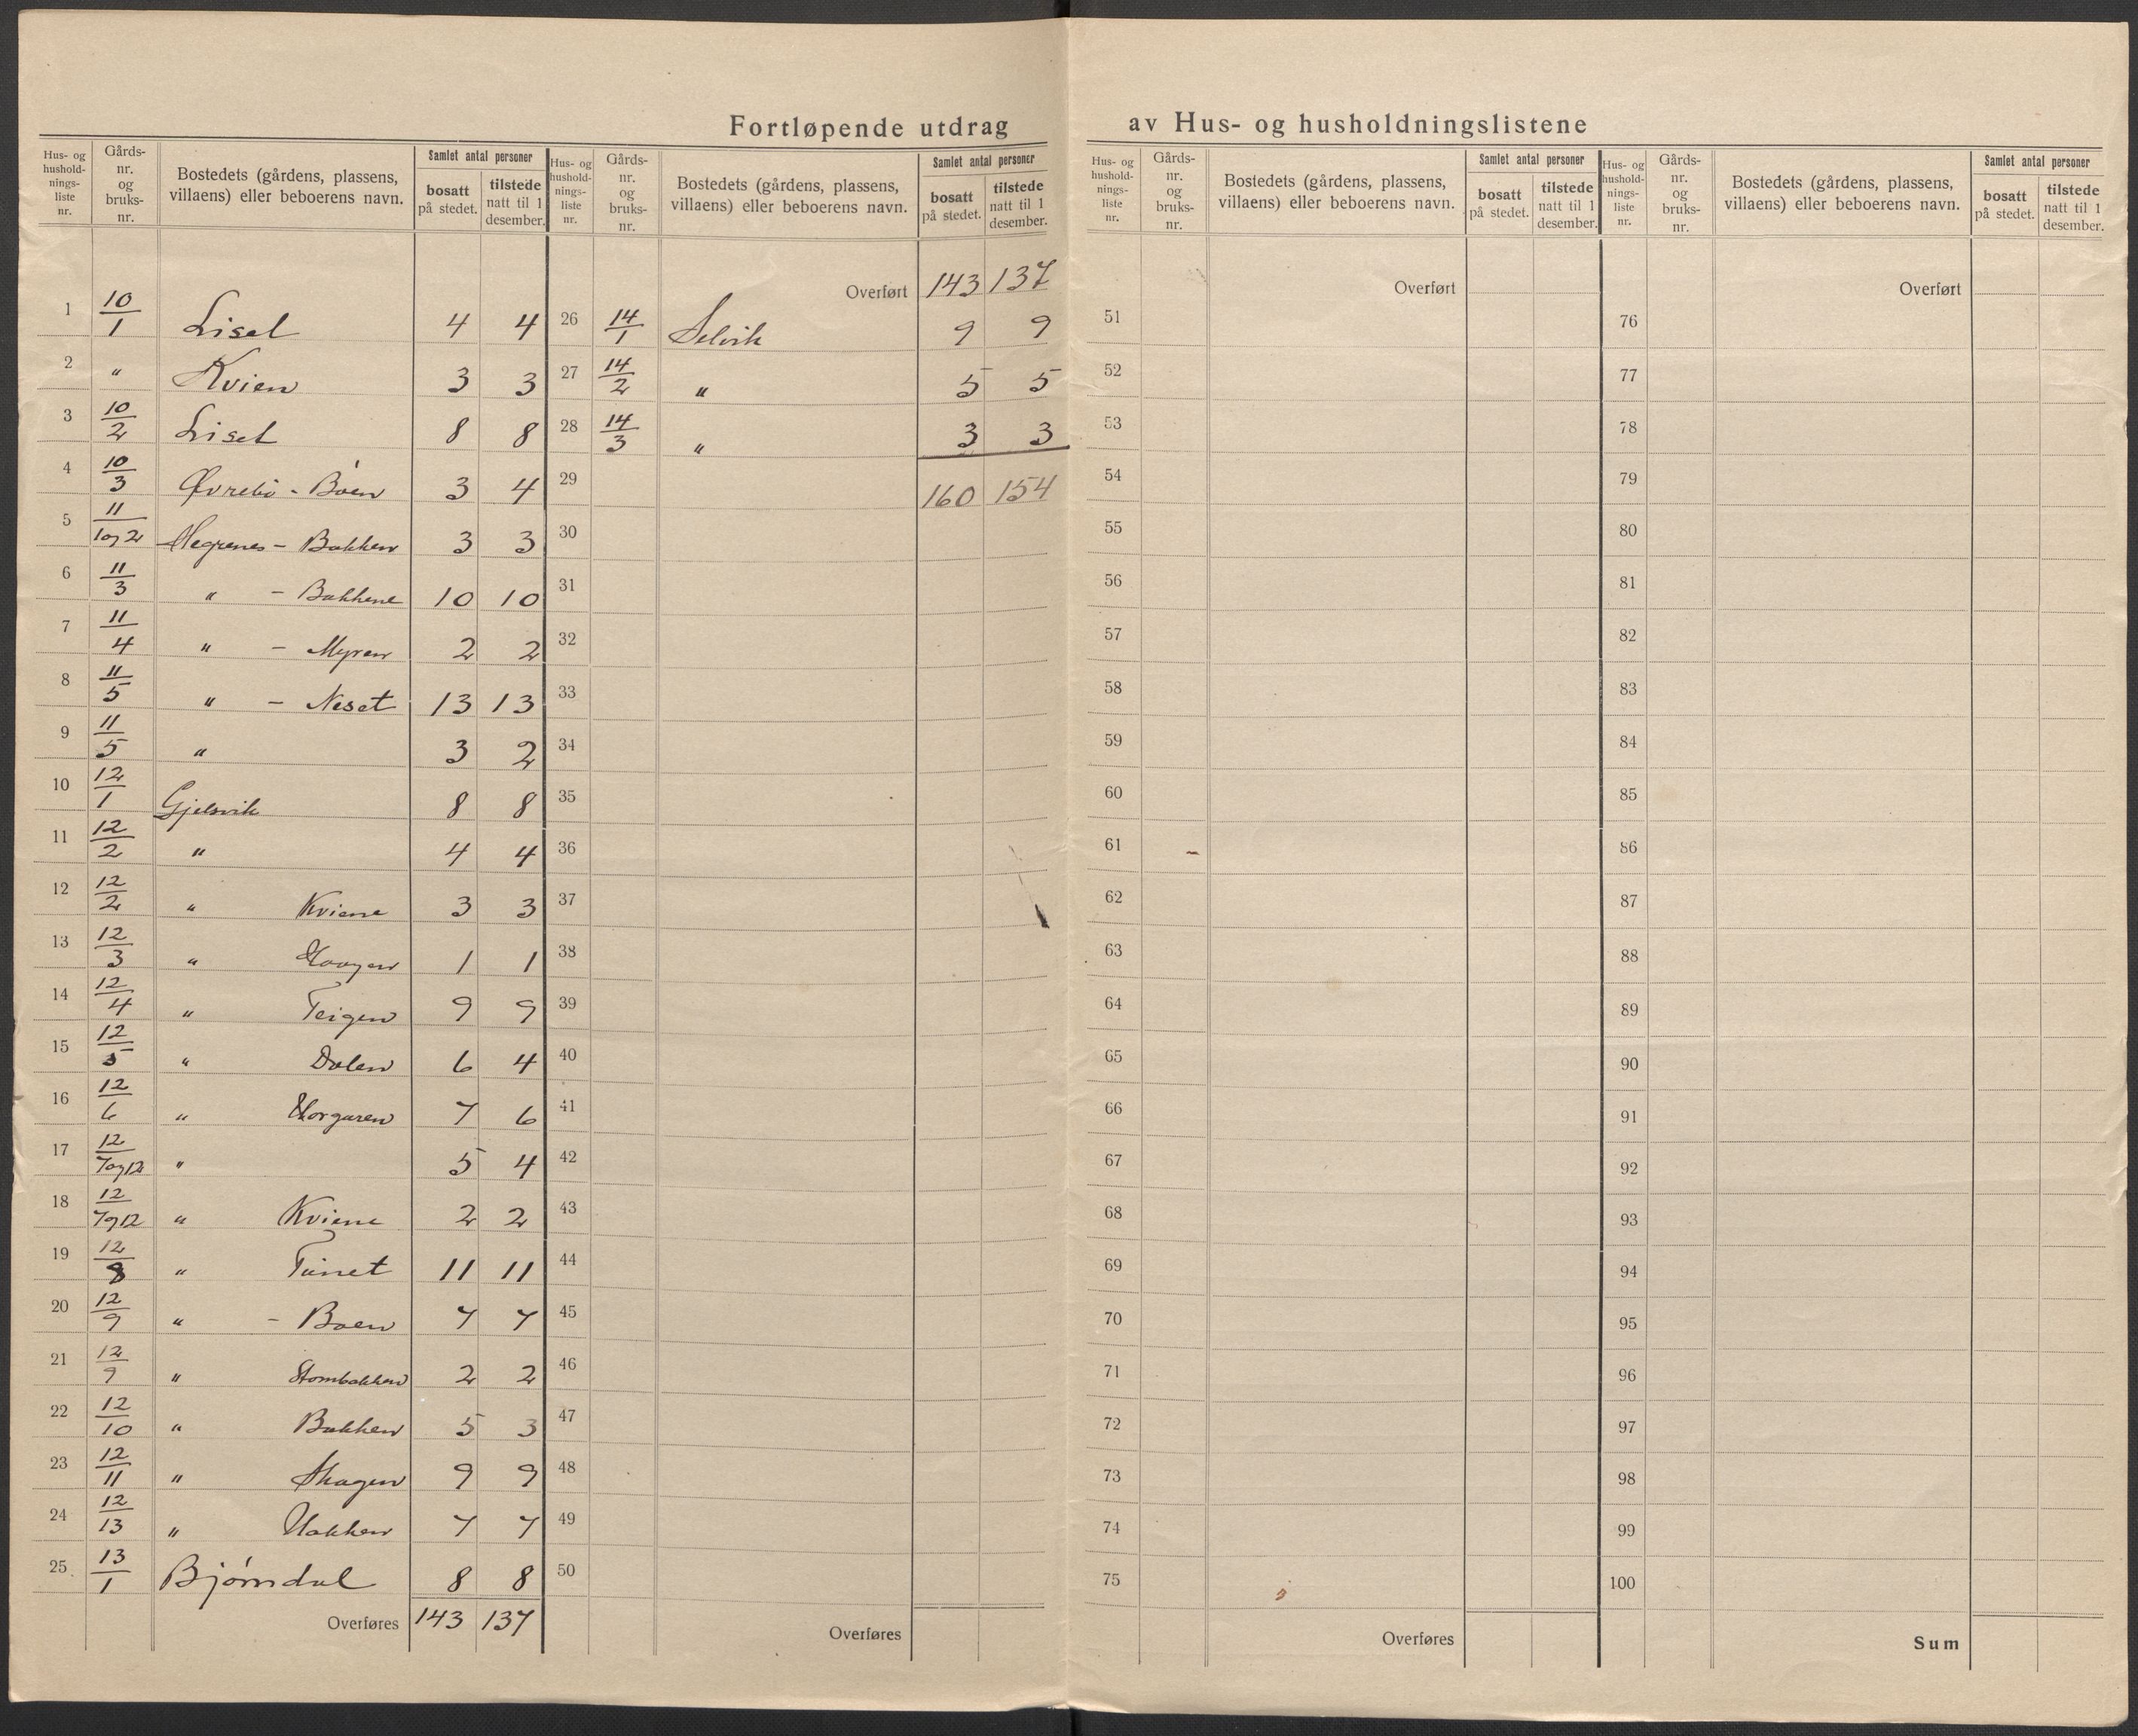 Fortløpende utdrag av Hus- og husholdningslistene
Hus- og hushold- nings- liste nr.
Gårds- nr. og bruks- nr.
Bostedets (gårdens, plassens, villaens) eller beboerens navn.
Samlet antal personer
bosatt på stedet.
tilstede natt til 1 desember.
1 10/1 Liset 4 4
2 " Kvien 3 3
3 10/2 Liset 8 8
4 10/3 Øvrebö - Böen 3 4
5 11/1og2 Hegrenes - Bakken 3 3
6 11/3 " - Bakkene 10 10
7 11/4 " - Myren 2 2
8 11/5 " - Neset 13 13
9 11/5 " 3 2
10 12/1 Gjelsvik 8 8
11 12/2 " 4 4
12 12/2 " Kviene 3 3
13 12/3 " Haagen 1 1
14 12/4 " Teigen 9 9
15 12/5 " Dalen 6 4
16 12/6 " Horgaren 7 6
17 12/7og12 " 5 4
18 12/7og12 " Kviene 2 2
19 12/8 " Tunet 11 11
20 12/9 " - Böen 7 7
21 12/9 " 2 2
22 12/10 " Bakken 5 3
23 12/11 " Skagen 9 9
24 12/13 " Hakken 7 7
25 13/1 Bjørndal 8 8
Overføres 143 137
Hus- og hushold- nings- liste nr.
Gårds- nr. og bruks- nr.
Bostedets (gårdens, plassens, villaens) eller beboerens navn.
Samlet antal personer
bosatt på stedet.
tilstede natt til 1 desember.
Overført 143 137
26 14/1 Selvik 9 9
27 14/2 " 5 5
28 14/3 " 3 3
29 160 154
30
31
32
33
34
35
36
37
38
39
40
41
42
43
44
45
46
47
48
49
50
Overføres
Hus- og hushold- nings- liste nr.
Gårds- nr. og bruks- nr.
Bostedets (gårdens, plassens, villaens) eller beboerens navn.
Samlet antal personer
bosatt på stedet.
tilstede natt til 1 desember.
Overført
51
52
53
54
55
56
57
58
59
60
61
62
63
64
65
66
67
68
69
70
71
72
73
74
75
Overføres
Hus- og hushold- nings- liste nr.
Gårds- nr. og bruks- nr.
Bostedets (gårdens, plassens, villaens) eller beboerens navn.
Samlet antal personer
bosatt på stedet.
tilstede natt til 1 desember.
Overført
76
77
78
79
80
81
82
83
84
85
86
87
88
89
90
91
92
93
94
95
96
97
98
99
100
Sum